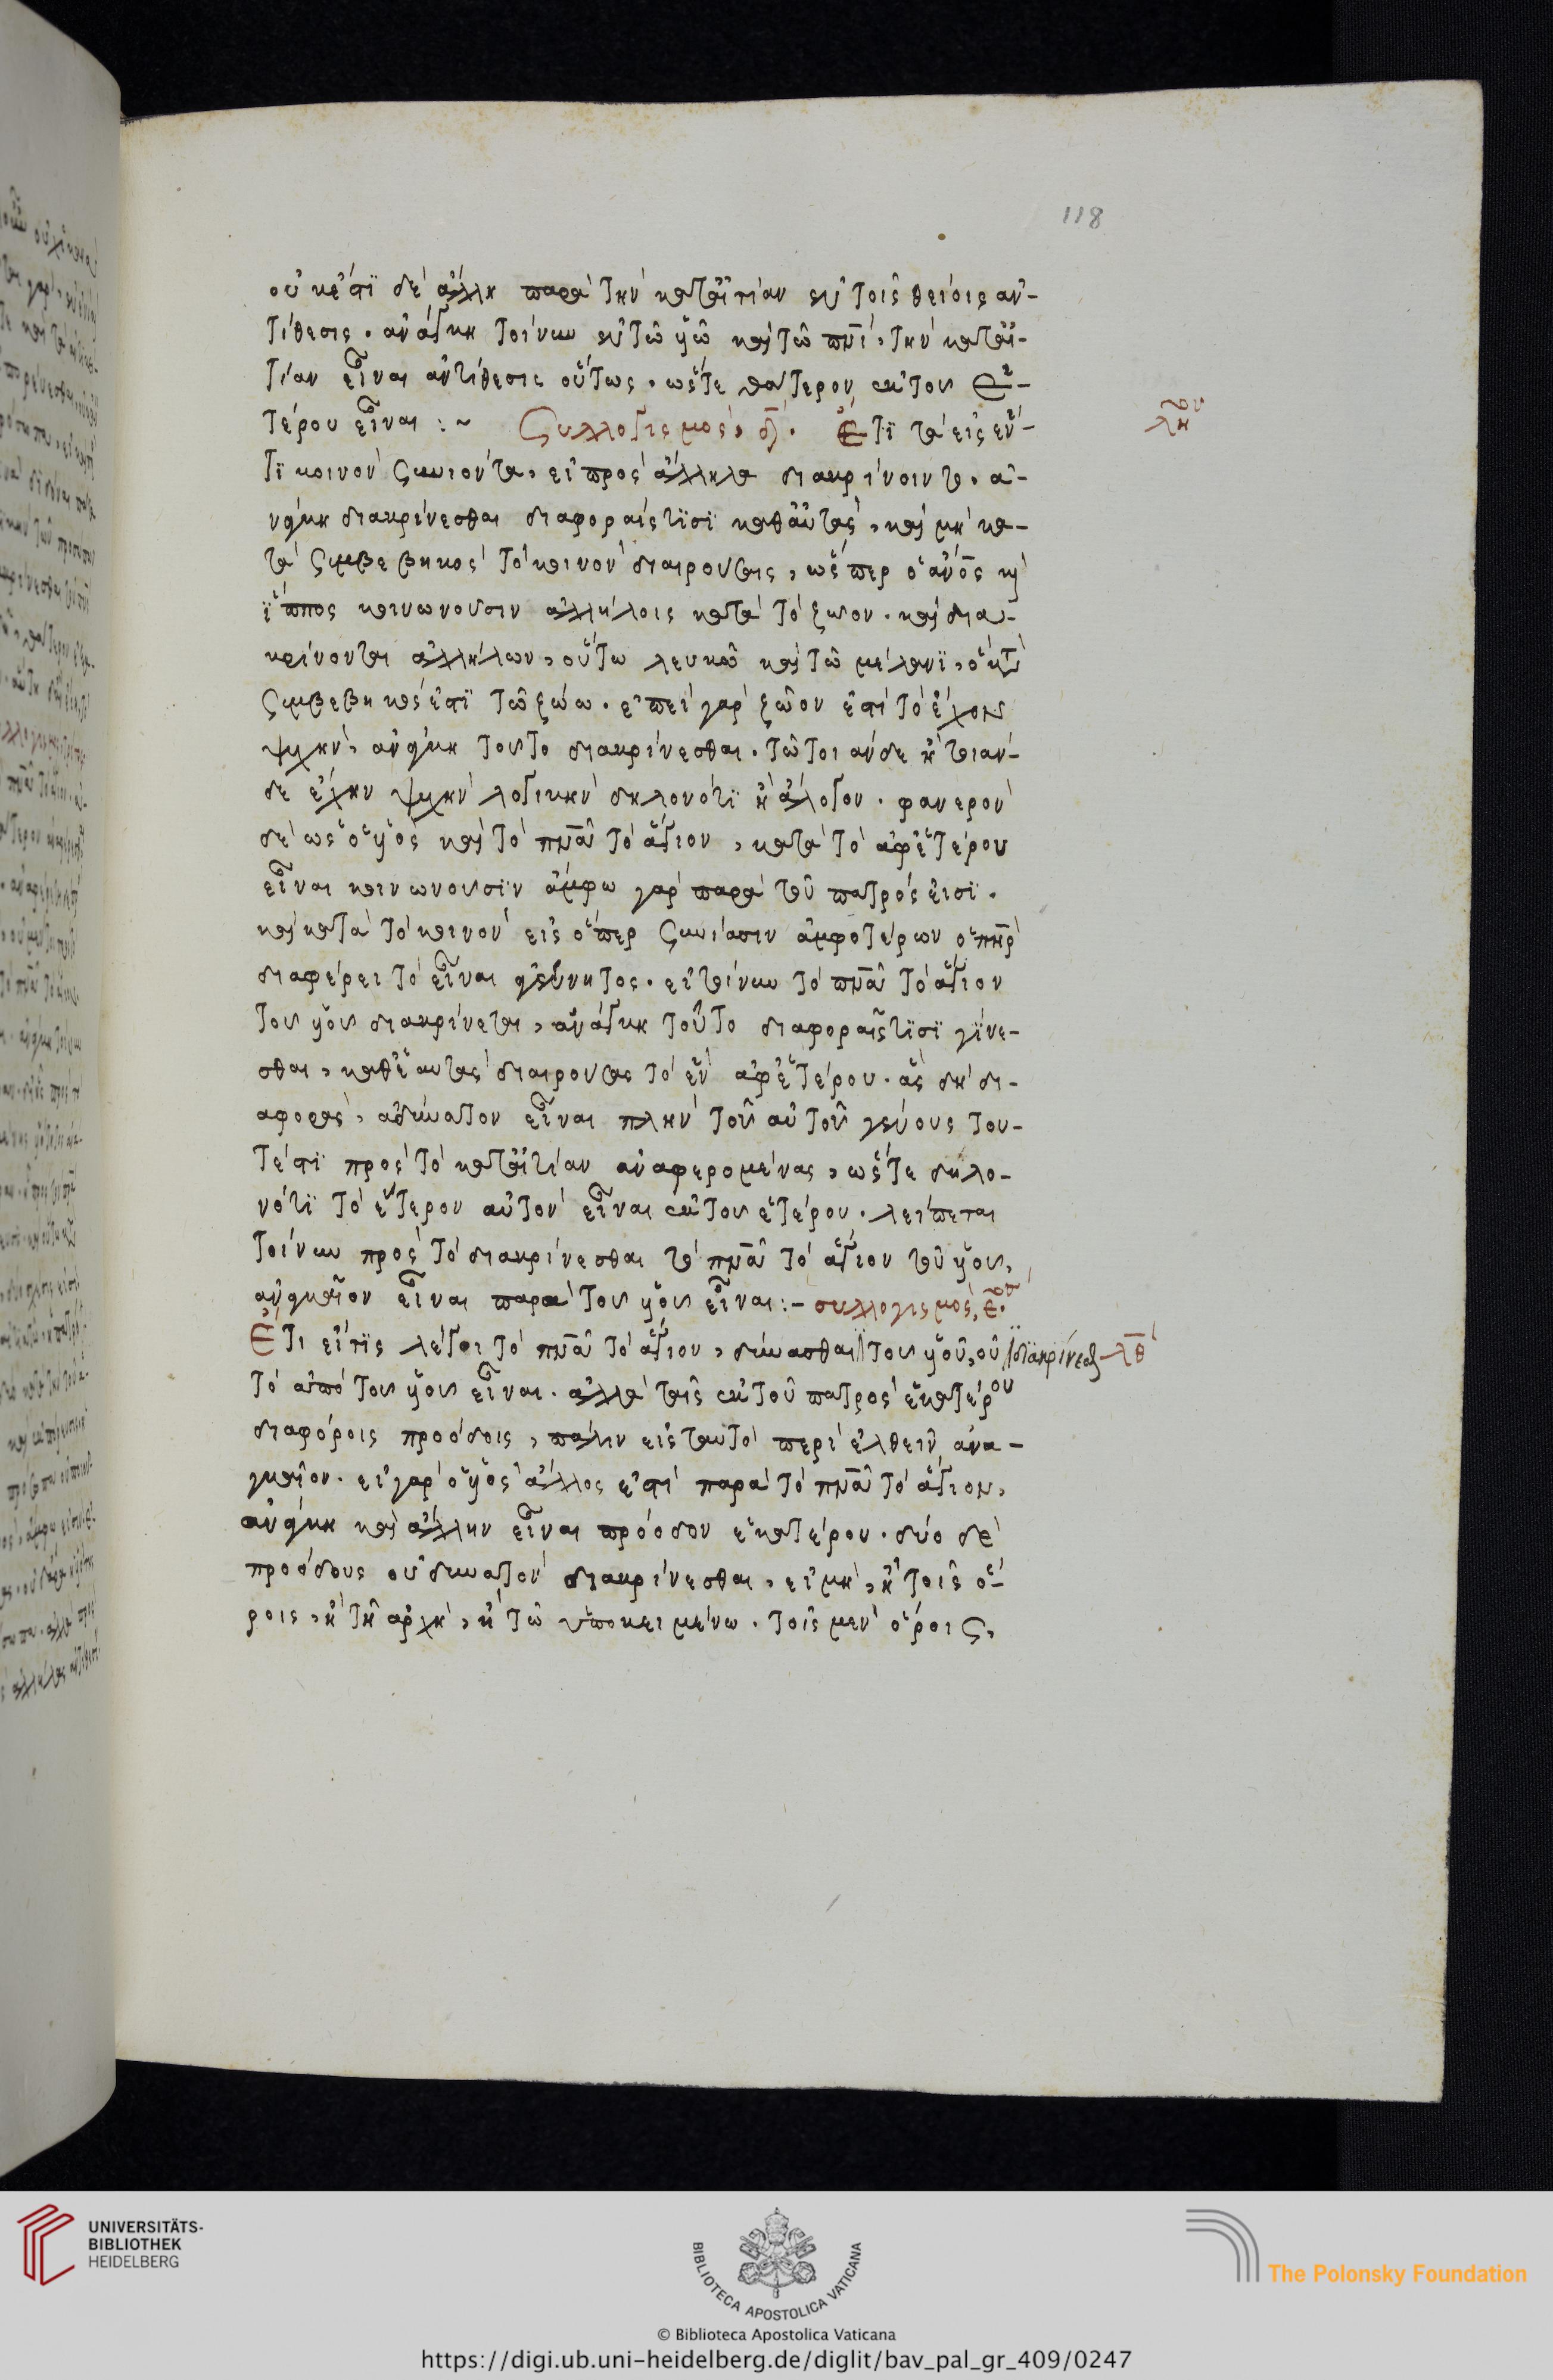 118
οὐκέστι δὲ ἄλλη παρὰ τὴν κατ' αἰτίαν ἐν τοῖς θείοις ἀν-
τίθεσις. ἀνάγκη τοίνυν ἐν τῶ υἱῶ καὶ τῶ πνι, τὴν κατ' αἰ-
τίαν εἶναι ἀντίθεσιν οὕτως. ὥστε θάτερον ἐκ τοῦ ἑ-
τέρου εἶναι :~ Συλλογισμός, δ. Ἔτι τὰ εἰς ἕν
τι κοινὸν συνιόντα, εἰ πρὸς ἄλληλα διακρίνοιντο. ἀ-
νάγκη διακρίνεσθαι διαφοραῖς τισὶ καθ' αὑτὰς, καὶ μὴ κα-
τὰ συμβεβηκὸς τὸ κοινὸν διαιρούσαις, ὥσπερ ὁ ἄνος καὶ
ἵππος κοινωνοῦσιν ἀλλήλοις κατὰ τὸ ζῶον. καὶ δια-
κρίνονται ἀλλήλων, οὔτω λευκῶ καὶ τῶ μέλανι, ὃ κατὰ
συμβεβηκός ἐστι τῶ ζώω. ἐπεὶ γὰρ ζῶον ἐστὶ τὸ ἔχον
ψυχὴν, ἀνάγκη τοῦτο διακρίνεσθαι. τῶ τοιάνδε ἢ τοιάν-
δε ἔχειν ψυχὴν λογικὴν δηλονότι ἢ ἄλογον. φανερὸν
δὲ ὡς ὁ υἱὸς καὶ τὸ πνα τὸ ἅγιον, κατὰ τὸ ἀφ' ἑτέρου
εἶναι κοινωνοῦσιν ἄμφω γὰρ παρὰ τοῦ πατρός εἰσι.
καὶ κατὰ τὸ κοινὸν εἰς ὅπερ συνίασιν ἀμφοτέρων ὁ πηρ
διαφέρει τὸ εἶναι ἀγέννητος. εἰ τοίνυν τὸ πνα τὸ ἅγιον
τοῦ υἱοῦ διακρίνεται, ἀνάγκη τοῦτο διαφοραῖς τισὶ γίνε-
σθαι, καθ' ἑαυτὰς διαιρούσας τὸ ἓν ἀφ' ἑτέρου. ἃς δὴ δι-
αφορὰς, ἀδύνατον εἶναι πλὴν τοῦ αὐτοῦ γένους του-
τέστι πρὸς τὸ κατ' αἰτίαν ἀναφερομένας, ὥστε δηλο-
νότι τὸ ἕτερον αὐτὸν εἶναι ἐκ τοῦ ἑτέρου. λείπεται
τοίνυν πρὸς τὸ διακρίνεσθαι τὸ πνα τὸ ἅγιον τοῦ υἱοῦ,
ἀναγκαῖον εἶναι παρὰ τοῦ υἱοῦ εἶναι :- συλλογισμός, ε.
Ἔτι εἴ τις λέγοι τὸ πνα τὸ ἅγιον, δύνασθαι τοῦ υἱοῦ, οὐ διακρίνεσθαι λθ
τὸ ἀπὸ τοῦ υἱοῦ εἶναι. ἀλλὰ ταῖς ἐκ τοῦ πατρὸς ἑκατέρου
διαφόροις προόδοις, πάλιν εἰς ταυτὸ περιελθεῖν ἀνα-
γκαῖον. εἰ γὰρ ὁ υἱὸς ἄλλος ἐστὶ παρὰ τὸ πνα τὸ ἅγιον,
ἀνάγκη καὶ ἄλλην εἶναι πρόοδον ἑκατέρου. δύο δὲ
προόδους οὐ δυνατὸν διακρίνεσθαι, εἰ μὴ, ἢ τοῖς ὅ-
ροις, ἢ τῆ ἀρχῆ, ἢ τῶ ὑποκειμένω. τοῖς μὲν ὅροις,
UNIVERSITÄTS-
BIBLIOTHEK
HEIDELBERG
BIBLIOTECA APOSTOLICA VATICANA
The Polonsky Foundation
© Biblioteca Apostolica Vaticana
https://digi.ub.uni-heidelberg.de/diglit/bav_pal_gr_409/0247